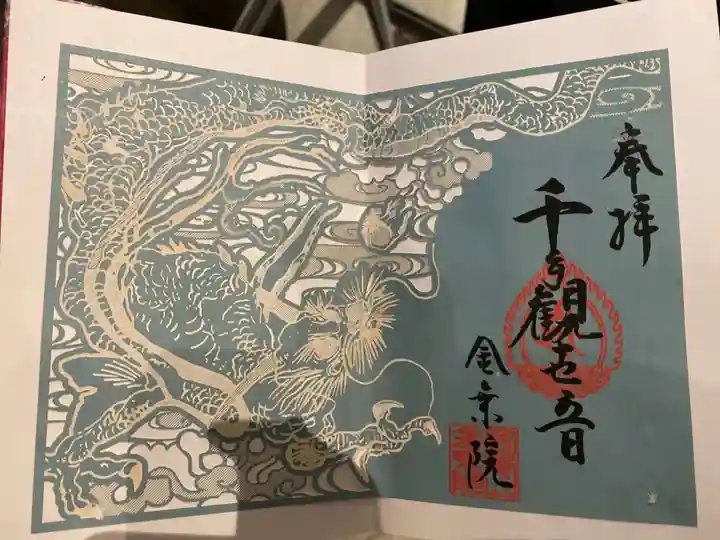 奉拝
千手觀世音
金乗院